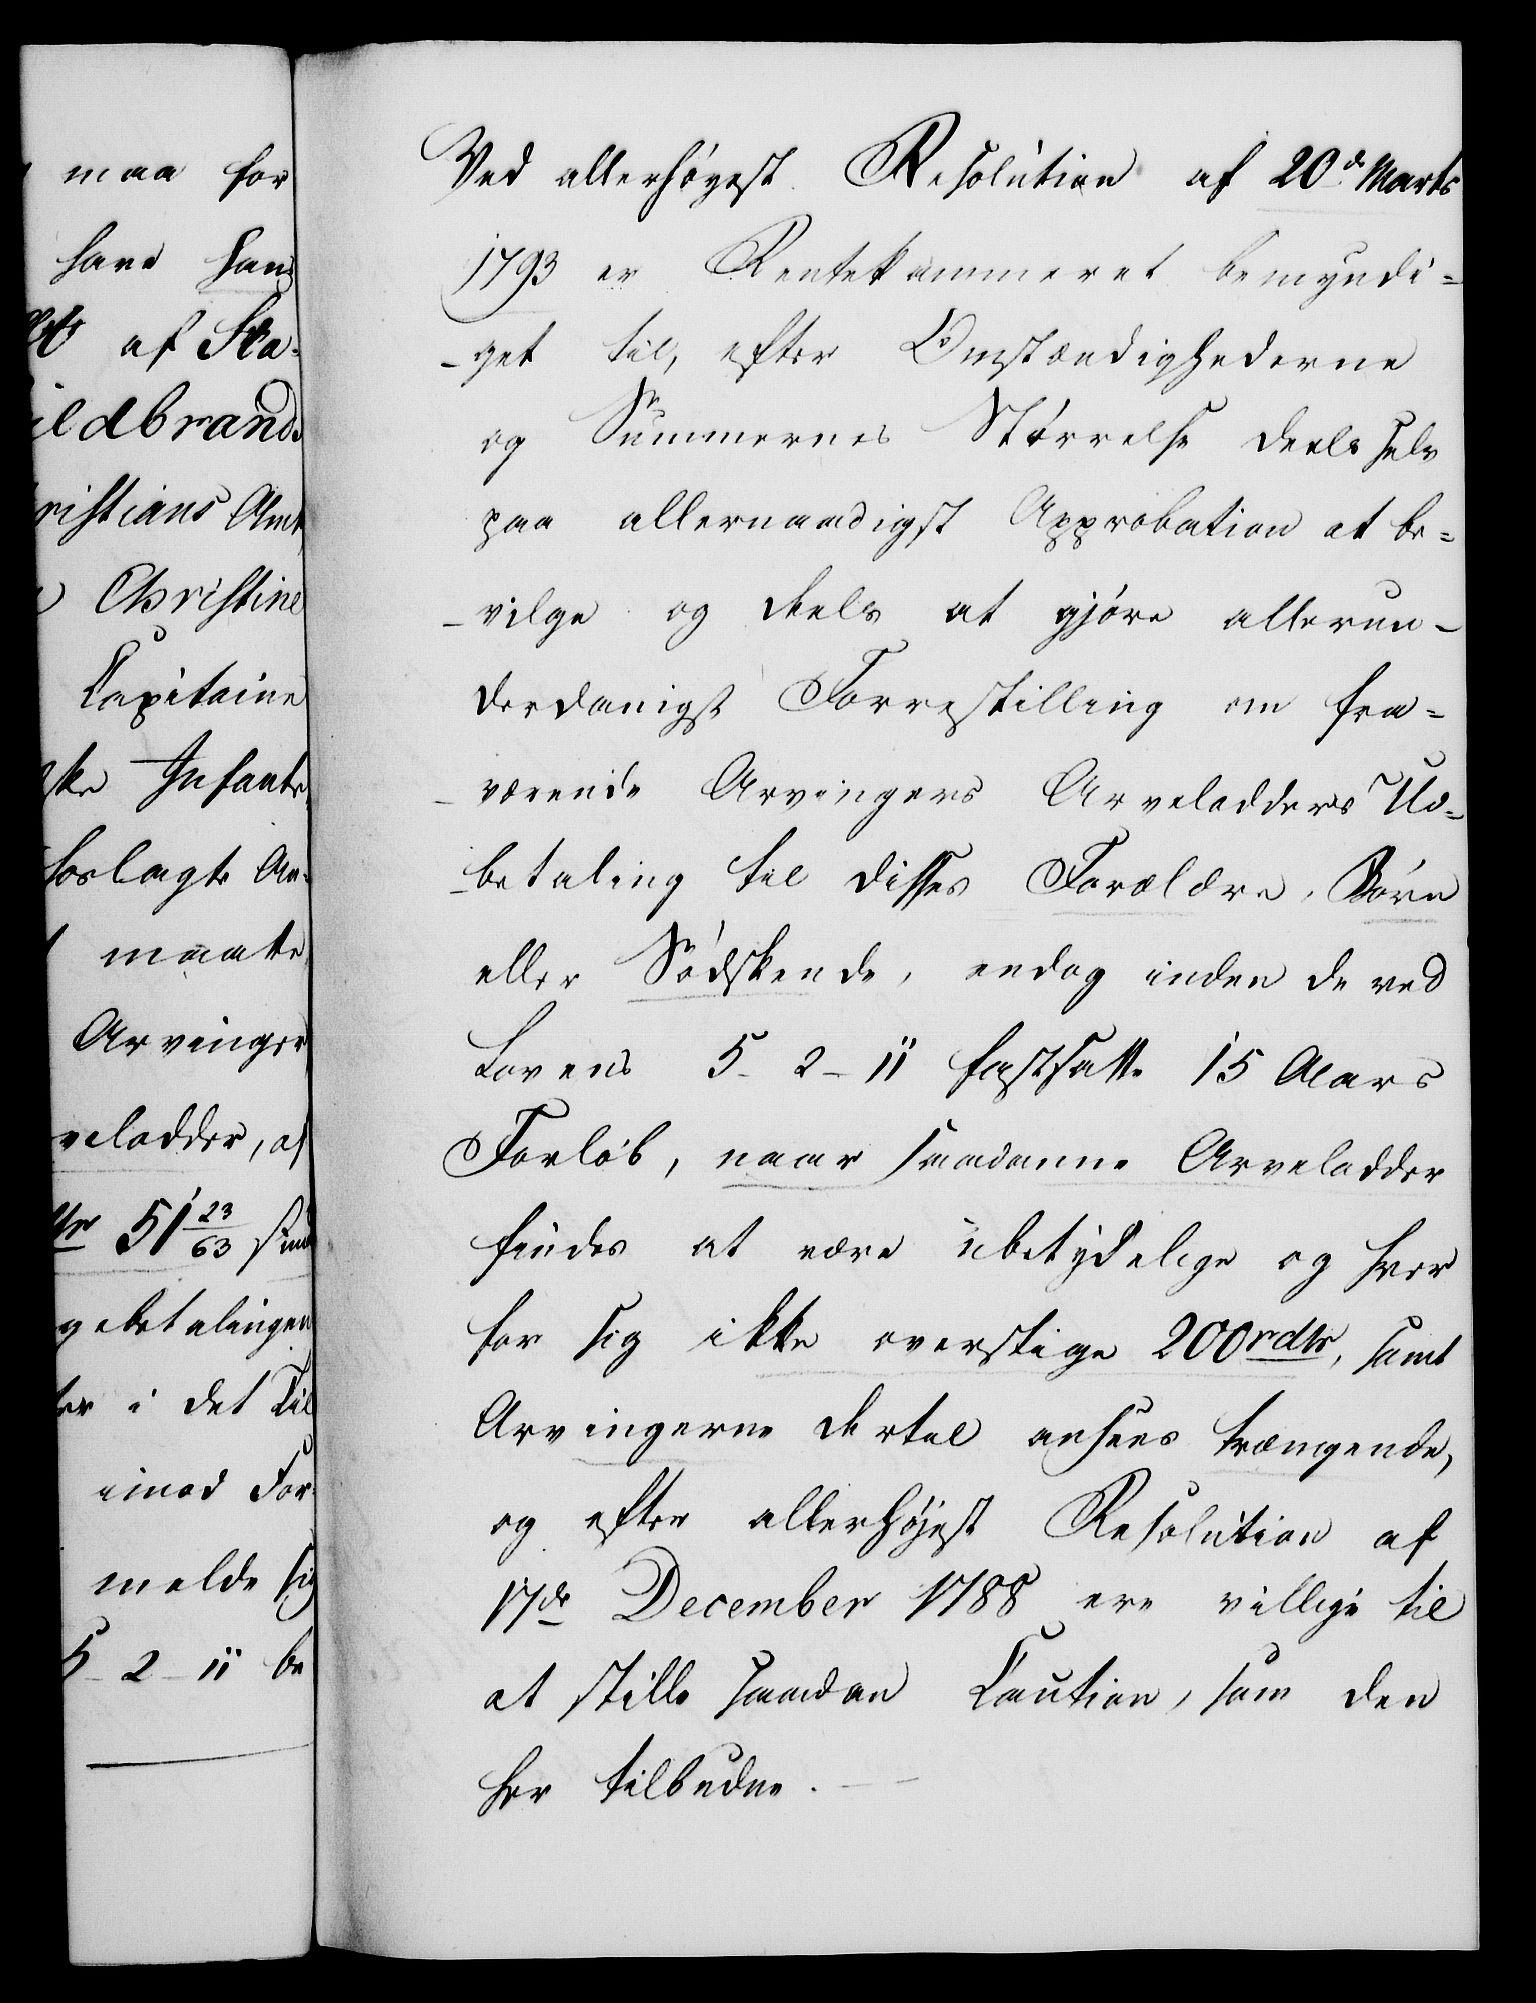 maa for
have hans
af Ska-
ildbrands
ristians Amt,
Christine
Capitaine
ske Infante
forlagte An-
maatte
Arvinger
veladder, af
51 23/63 sind
gebetalingen
ter i det Til
imod For-
melde sig
5-2-11 be
Ved allerhøyest Resolution af 20de Marts
1793 er Rentekammeret bemyndi-
-get til, efter Omstændighederne
og Summernes Størrelse deels selv
paa allernaadigst Approbation at be-
-vilge og deels at gjøre allerun-
derdanigst Forrestilling om fra-
-værende Arvingers Arveladders Ud-
-betaling til disses Forældre, Børn
eller Sødskende, endog inden de ved
Lovens 5-2-11 fastsatte 15 Aars
Forløb, naar saadanne Arveladder
findes at være ubetydelige og hver
for sig ikke overstige 200 rdlr, samt
Arvingerne dertil ansees trængende,
og efter allerhøjest Resolution af
17de December 1788 ere villige til
at stille saadan Caution, som den
her tilbudne.